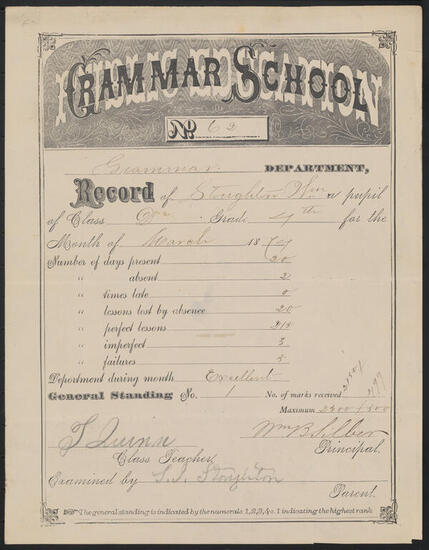 PUBLIC EDUCATION
GRAMMAR SCHOOL
No 62
Grammar. DEPARTMENT,
Record of Stoughton Wm a pupil
of Class D Grade 4th for the
Month of March 1874
Number of days present 20
" absent 2
" times late 0
" lessons lost by absence 20
" perfect lessons 218
" imperfect 3
" failures 5
Deportment during month Excellent
General Standing No. 1 No. of marks received
Maximum 2300/500
T Quinn Wm B Silber
Class Teacher Principal.
Examined by S. S. Stoughton
Parent.
The general standing is indicated by the numerals 1,2,3,4 c. 1 indicating the highest rank